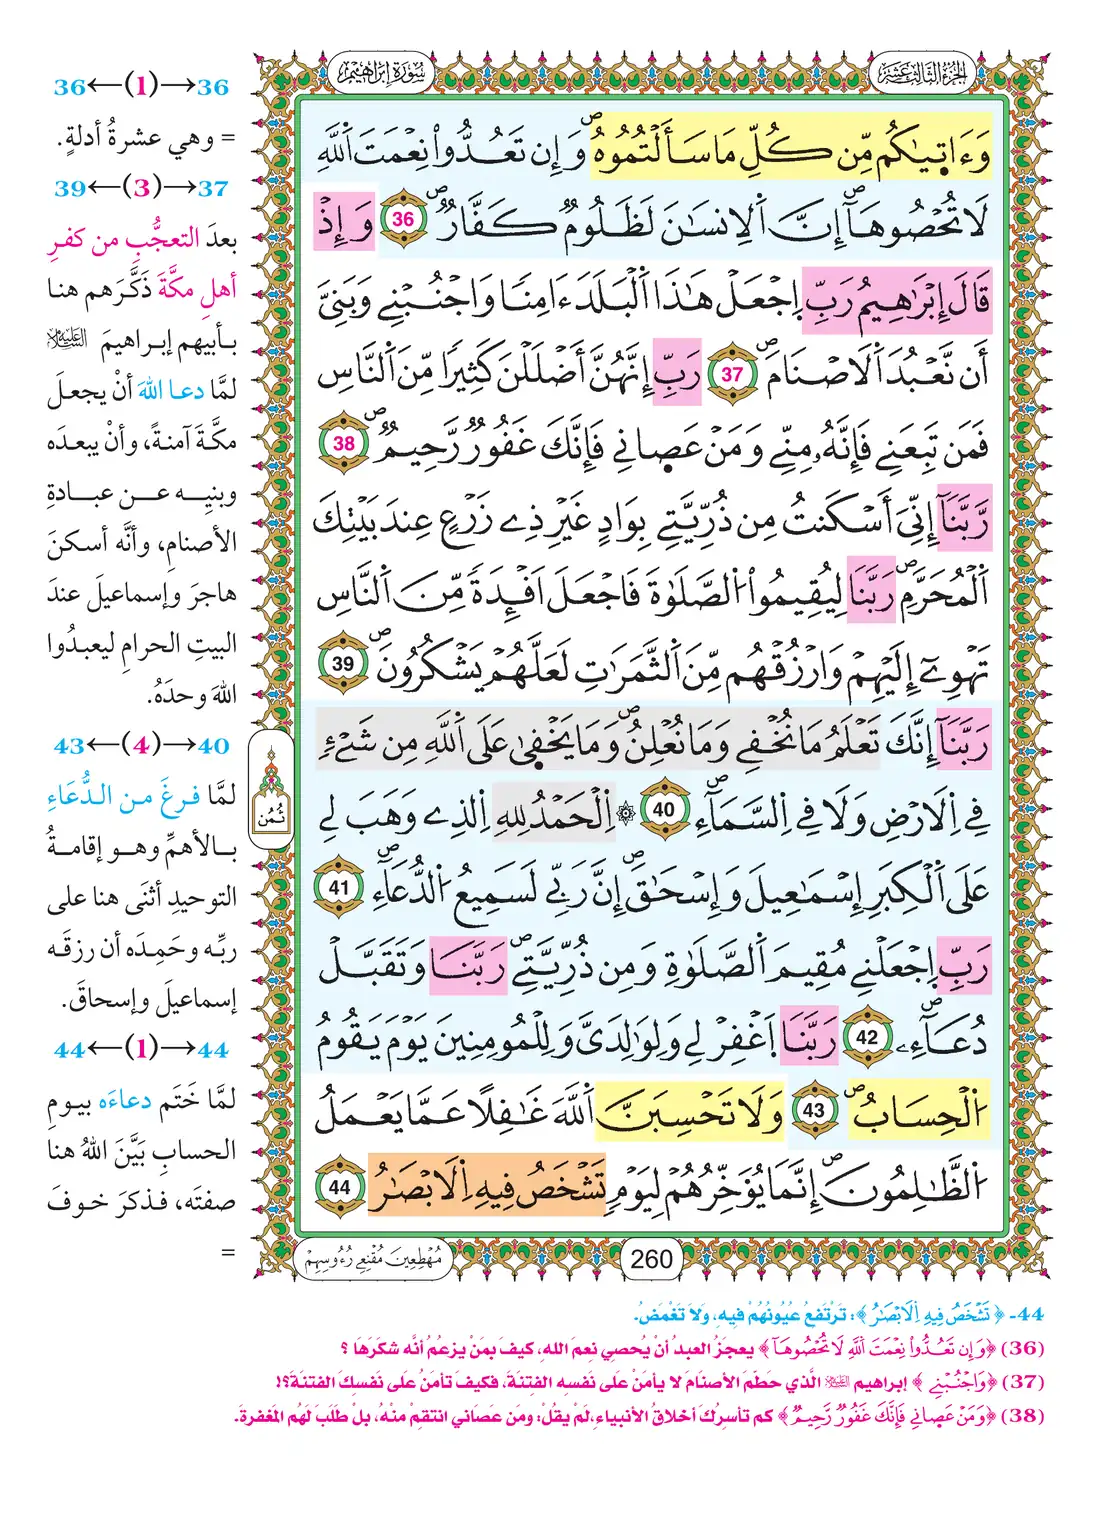 الجزء الثالث عشر
سورة إبراهيم
وَءَاتٜيٰكُم مِّن كُلِّ مَا سَأَلْتُمُوهُۖ وَإِن تَعُدُّواْ نِعْمَتَ اَ۬للَّهِ
لَا تُحْصُوهَآۖ إِنَّ اَ۬لِانسَٰنَ لَظَلُومٞ كَفَّارٞۖ 36 وَإِذْ
قَالَ إِبْرَٰهِيمُ رَبِّ اِ۪جْعَلْ هَٰذَا اَ۬لْبَلَدَ ءَامِنٗا وَاجْنُبْنِے وَبَنِيَّ
أَن نَّعْبُدَ اَ۬لَاصْنَامَۖ 37 رَبِّ إِنَّهُنَّ أَضْلَلْنَ كَثِيرٗا مِّنَ اَ۬لنَّاسِ
فَمَن تَبِعَنِے فَإِنَّهُۥ مِنِّے وَمَنْ عَصَانِے فَإِنَّكَ غَفُورٞ رَّحِيمٞۖ 38
رَّبَّنَآ إِنِّيَ أَسْكَنتُ مِن ذُرِّيَّتِے بِوَادٍ غَيْرِ ذِے زَرْعٍ عِندَ بَيْتِكَ
اَ۬لْمُحَرَّمِۖ رَبَّنَا لِيُقِيمُواْ اُ۬لصَّلَوٰةَ فَاجْعَلَ اَفْـِٕدَةٗ مِّنَ اَ۬لنَّاسِ
تَهْوِےٓ إِلَيْهِمْ وَارْزُقْهُم مِّنَ اَ۬لثَّمَرَٰتِ لَعَلَّهُمْ يَشْكُرُونَۖ 39
رَبَّنَآ إِنَّكَ تَعْلَمُ مَا نُخْفِے وَمَا نُعْلِنُۖ وَمَا يَخْفٜيٰ عَلَى اَ۬للَّهِ مِن شَےْءٖ
فِے اِ۬لَارْضِ وَلَا فِے اِ۬لسَّمَآءِۖ 40 ۞ اِ۬لْحَمْدُ لِلهِ اِ۬لذِے وَهَبَ لِے
عَلَى اَ۬لْكِبَرِ إِسْمَٰعِيلَ وَإِسْحَٰقَۖ إِنَّ رَبِّے لَسَمِيعُ اُ۬لدُّعَآءِۖ 41
رَبِّ اِ۪جْعَلْنِے مُقِيمَ اَ۬لصَّلَوٰةِ وَمِن ذُرِّيَّتِےۖ رَبَّنَا وَتَقَبَّلْ
دُعَآءِۦۖ 42 رَبَّنَا اَ۪غْفِرْ لِے وَلِوَٰلِدَيَّ وَلِلْمُومِنِينَ يَوْمَ يَقُومُ
اُ۬لْحِسَابُۖ 43 وَلَا تَحْسِبَنَّ اَ۬للَّهَ غَٰفِلًا عَمَّا يَعْمَلُ
اُ۬لظَّٰلِمُونَۖ إِنَّمَا يُؤَخِّرُهُمْ لِيَوْمٖ تَشْخَصُ فِيهِ اِ۬لَابْصَٰرُ 44
ثُمُن
مُهْطِعِينَ مُقْنِعِے رُءُوسِهِمْ
260
36←(1)→36
= وهي عشرةُ أدلةٍ.
39←(3)→37
بعدَ التعجُّبِ من كفرِ
أهلِ مكَّةَ ذَكَّرَهم هنا
بأبيهم إبراهيمَ عليه السلام
لمَّا دعا اللهَ أنْ يجعلَ
مكَّةَ آمنةً، وأنْ يبعدَه
وبنيِه عن عبادةِ
الأصنامِ، وأنَّه أسكنَ
هاجرَ وإسماعيلَ عندَ
البيتِ الحرامِ ليعبدُوا
اللهَ وحدَهُ.
43←(4)→40
لمَّا فرغَ من الدُّعَاءِ
بالأهمِّ وهو إقامةُ
التوحيدِ أثنَى هنا على
ربِّه وحَمِدَه أن رزقَه
إسماعيلَ وإسحاقَ.
44←(1)→44
لمَّا خَتَم دعاءَه بيومِ
الحسابِ بَيَّنَ اللهُ هنا
صفتَه، فذكرَ خوفَ
=
44- ﴿تَشْخَصُ فِيهِ اِ۬لَابْصَٰرُ﴾: تَرْتَفعُ عُيُونُهُمْ فيهِ، ولا تَغْمَضُ.
(36) ﴿وَإِن تَعُدُّواْ نِعْمَتَ اَ۬للَّهِ لَا تُحْصُوهَآ﴾ يعجزُ العبدُ أنْ يُحصي نعمَ اللهِ، كيفَ بمَنْ يزعمُ أنَّه شكَرَهَا ؟
(37) ﴿وَاجْنُبْنِے﴾ إبراهيم عليه السلام الَّذي حطَّمَ الأصنامَ لا يأمَنُ على نَفسِه الفِتنَةَ، فكيفَ تأمنُ على نَفسِكَ الفتنَةَ؟!
(38) ﴿وَمَنْ عَصَانِے فَإِنَّكَ غَفُورٞ رَّحِيمٞ﴾ كم تأسرُك أخلاقُ الأنبياءِ، لَمْ يقُلْ: ومَن عصَاني انتقمْ منْهُ، بلْ طلَبَ لَهُم المَغفرةَ.